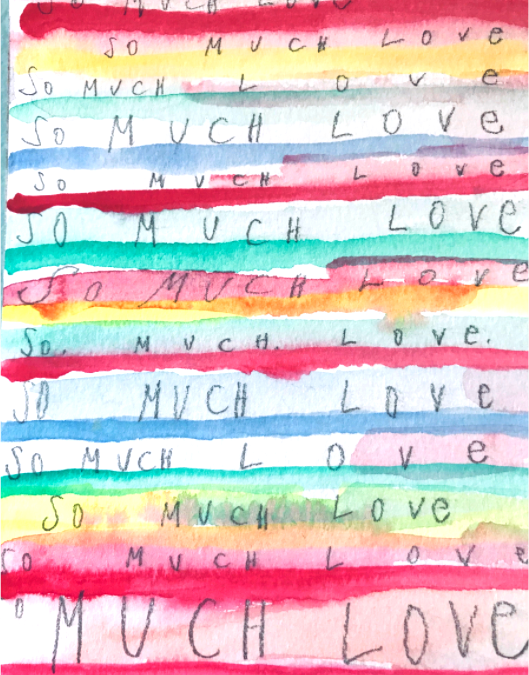 So MUCH LOVE
SO MUCH LOVe
SO MUCH LOve
SO MUCH LOVe
SO MUCH LOVe
SO MUCH LOVe
SO MUCH LOve
So. MUCH. LOve.
SO MUCH LOVe
SO MUCH LOVe
SO MUCH LOVe
SO MUCH LOVe
O MUCH LOVe